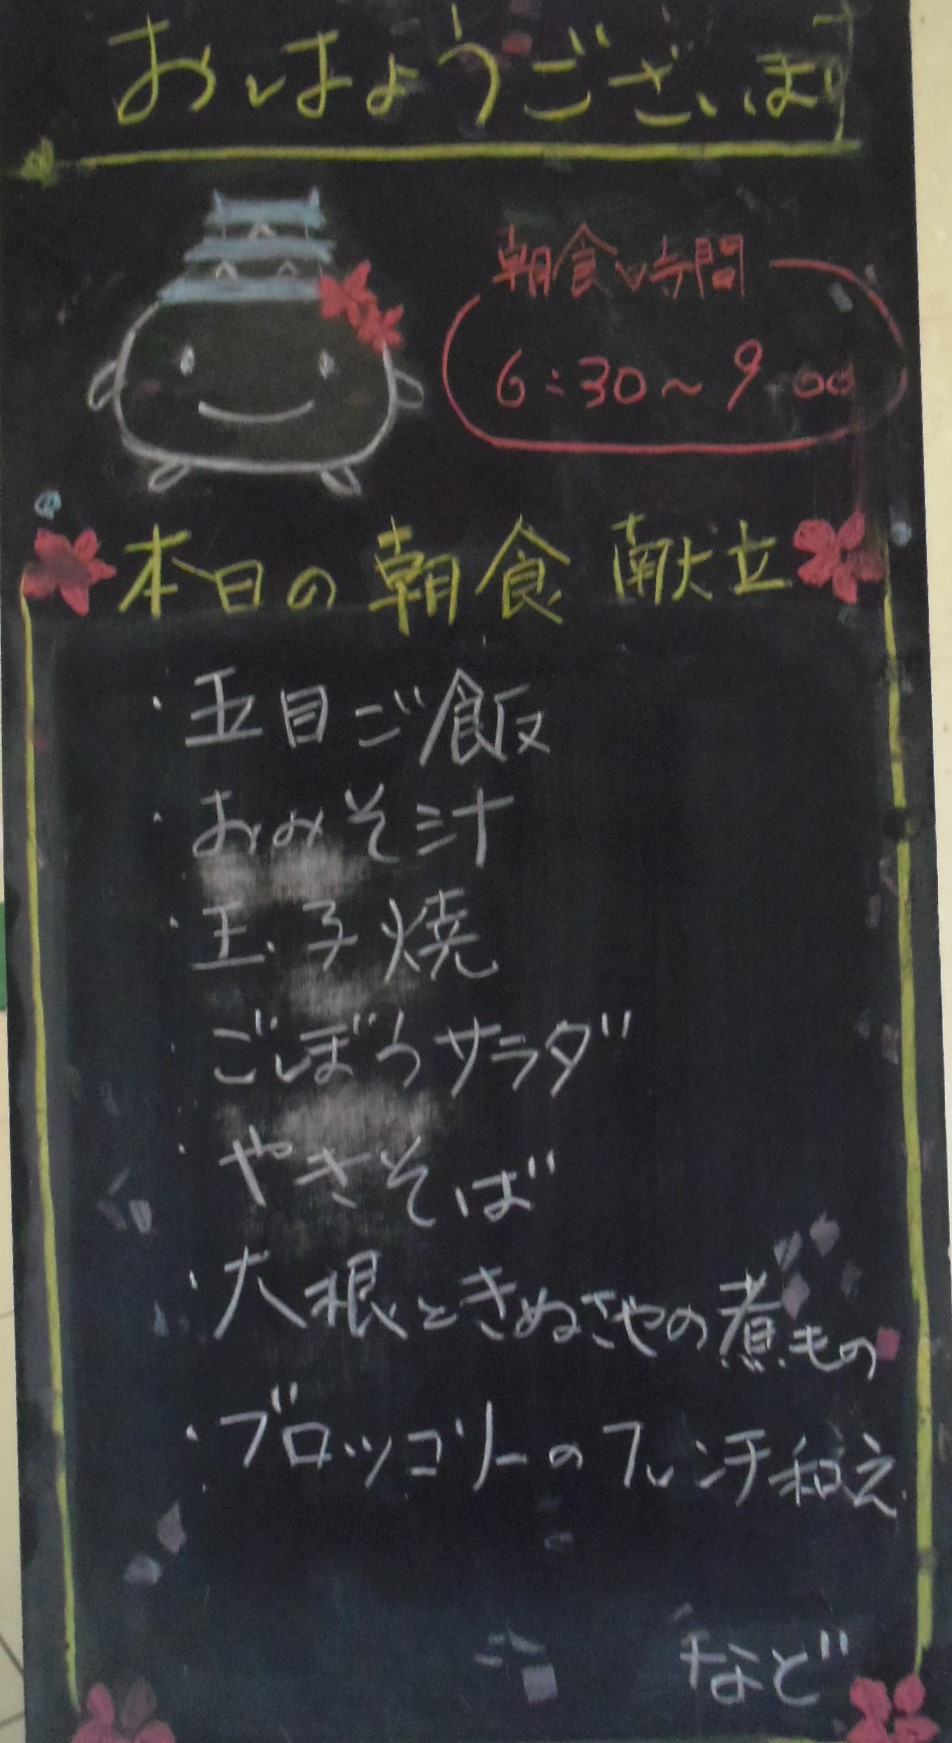 おはようございます
朝食時間
6:30～9:00
本日の朝食献立
・五目ご飯
・おみそ汁
・玉子焼
・ごぼうサラダ
・やきそば
・大根ときぬさやの煮もの
・ブロッコリーのフレンチ和え
など